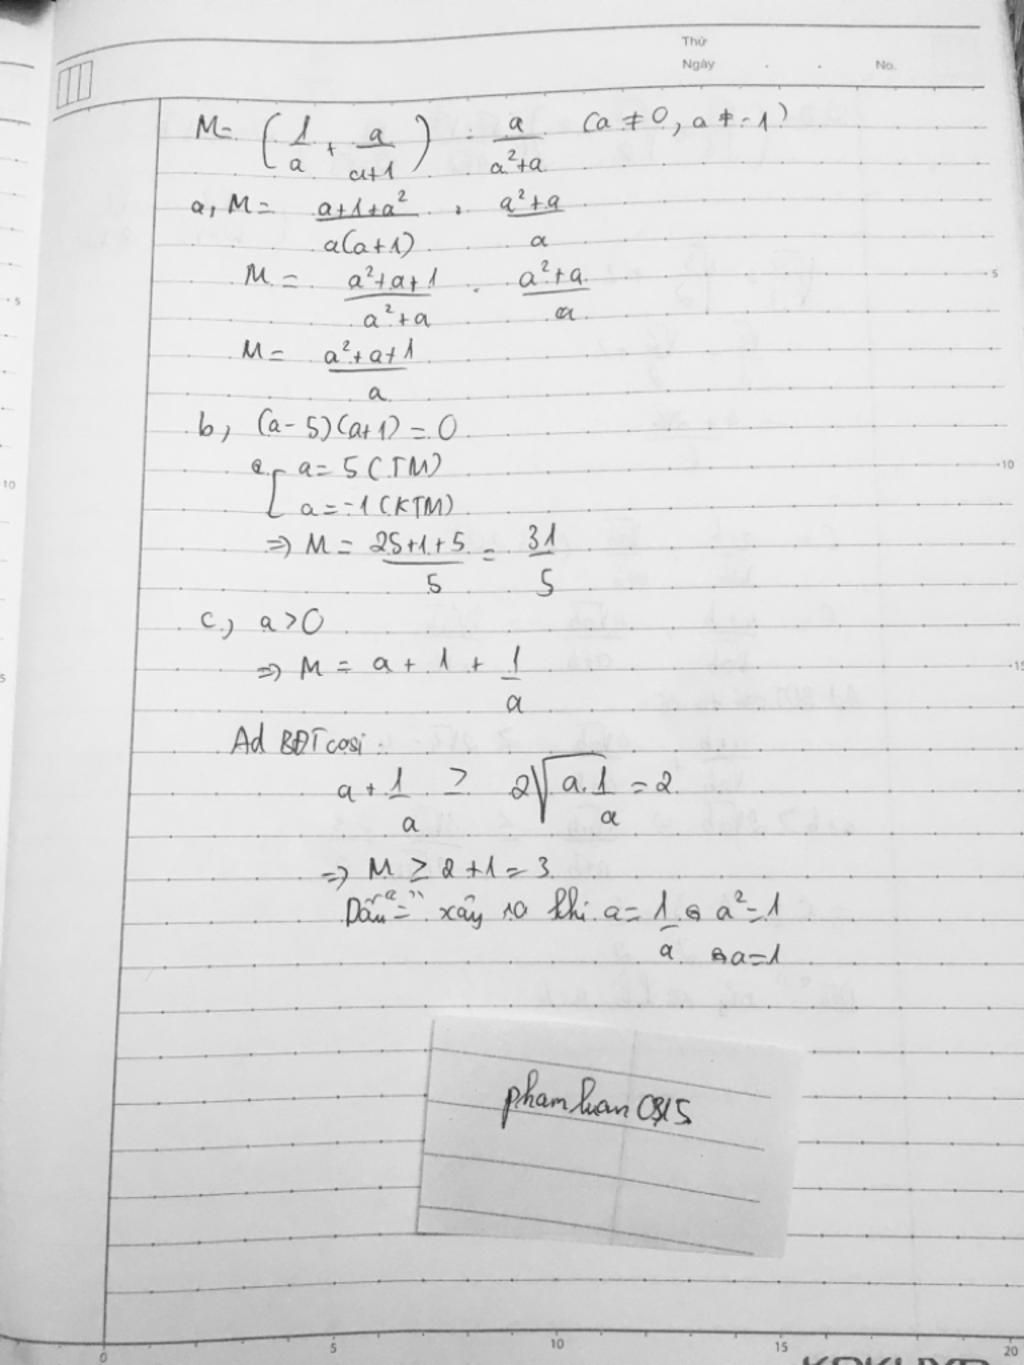 Thứ
Ngày . . No.
M = (1/a + a/(a+1)) : a/(a²+a) (a ≠ 0, a ≠ -1)
a, M = (a+1+a²)/(a(a+1)) . (a²+a)/a
M = (a²+a+1)/(a²+a) . (a²+a)/a
5
M = (a²+a+1)/a
b, (a-5)(a+1) = 0
[ a = 5 (TM)
10
a = -1 (KTM)
⇒ M = (25+1+5)/5 = 31/5
c, a > 0
⇒ M = a + 1 + 1/a
Ad BĐT cosi:
a + 1/a ≥ 2√(a.1/a) = 2
⇒ M ≥ 2 + 1 = 3
Dấu "=" xảy ra khi a = 1/a ⇔ a² = 1
⇔ a = 1
phamluan0815
0 5 10 15 20